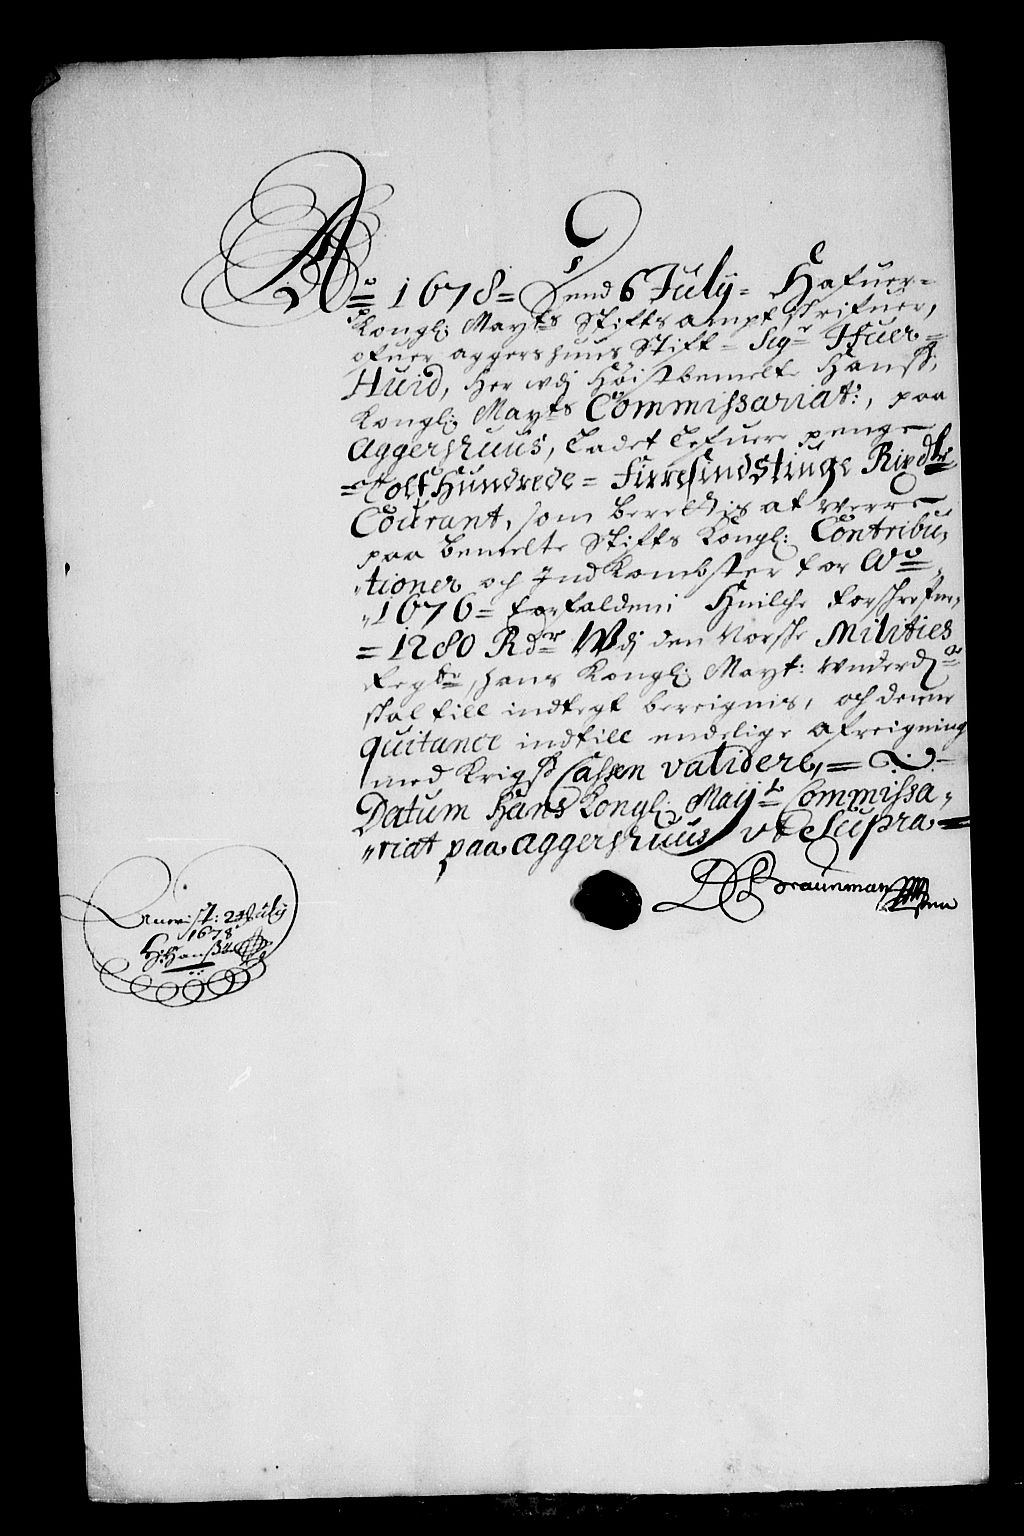 Ao 1678 = Dend 6 July = Hafuer =
Kongl: Mayts Stiftsampt schrifuer,
ofuer aggershuus Stift = Sigr Ifuer =
Huid, her vdj Høistbemelte Hans
Kongl: Mayts Commissariat:, paa
Aggershuus, Ladet Lefuere penge
= Tolf Hundrede = Firresindstiuge Rixdlr
Courant, som berettis at werre
paa bemelte Stifts Kongl: Contribu,
,tioner och Indkombster for Ao =
,,1676 = forfalden; Huilche forschrefne,
= 1280 Rdr Wdj den Norske Milities
Regstr, hans Kongl: Mayt: vnderd:
skal till indtegt bereignis, och denne
quitance indtill endelige afreigning
med Krigs Cassen validere, =
Datum Hans Kongl: Mayts Commissa,,
,,riat paa Aggershuus ut Supra =
D Braunman
Anuist: 24 July
1678
H: Hanssen